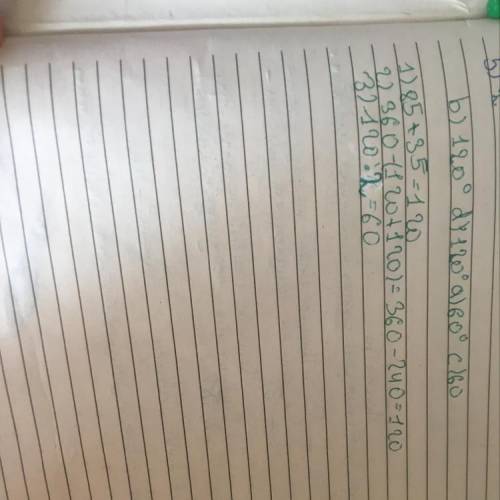 b) 120° d) 120° a) 60° c) 60
1) 85 + 35 = 120
2) 360 - (120 + 120) = 360 - 240 = 120
3) 120 : 2 = 60